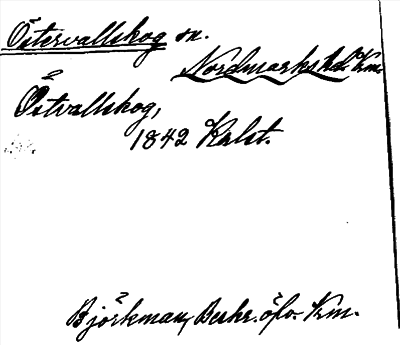 Östervallskog sn.
Nordmarks hd. Km.
Östvallskog,
1842 Kalst.
Björkman, Beskr. öfv. Km.